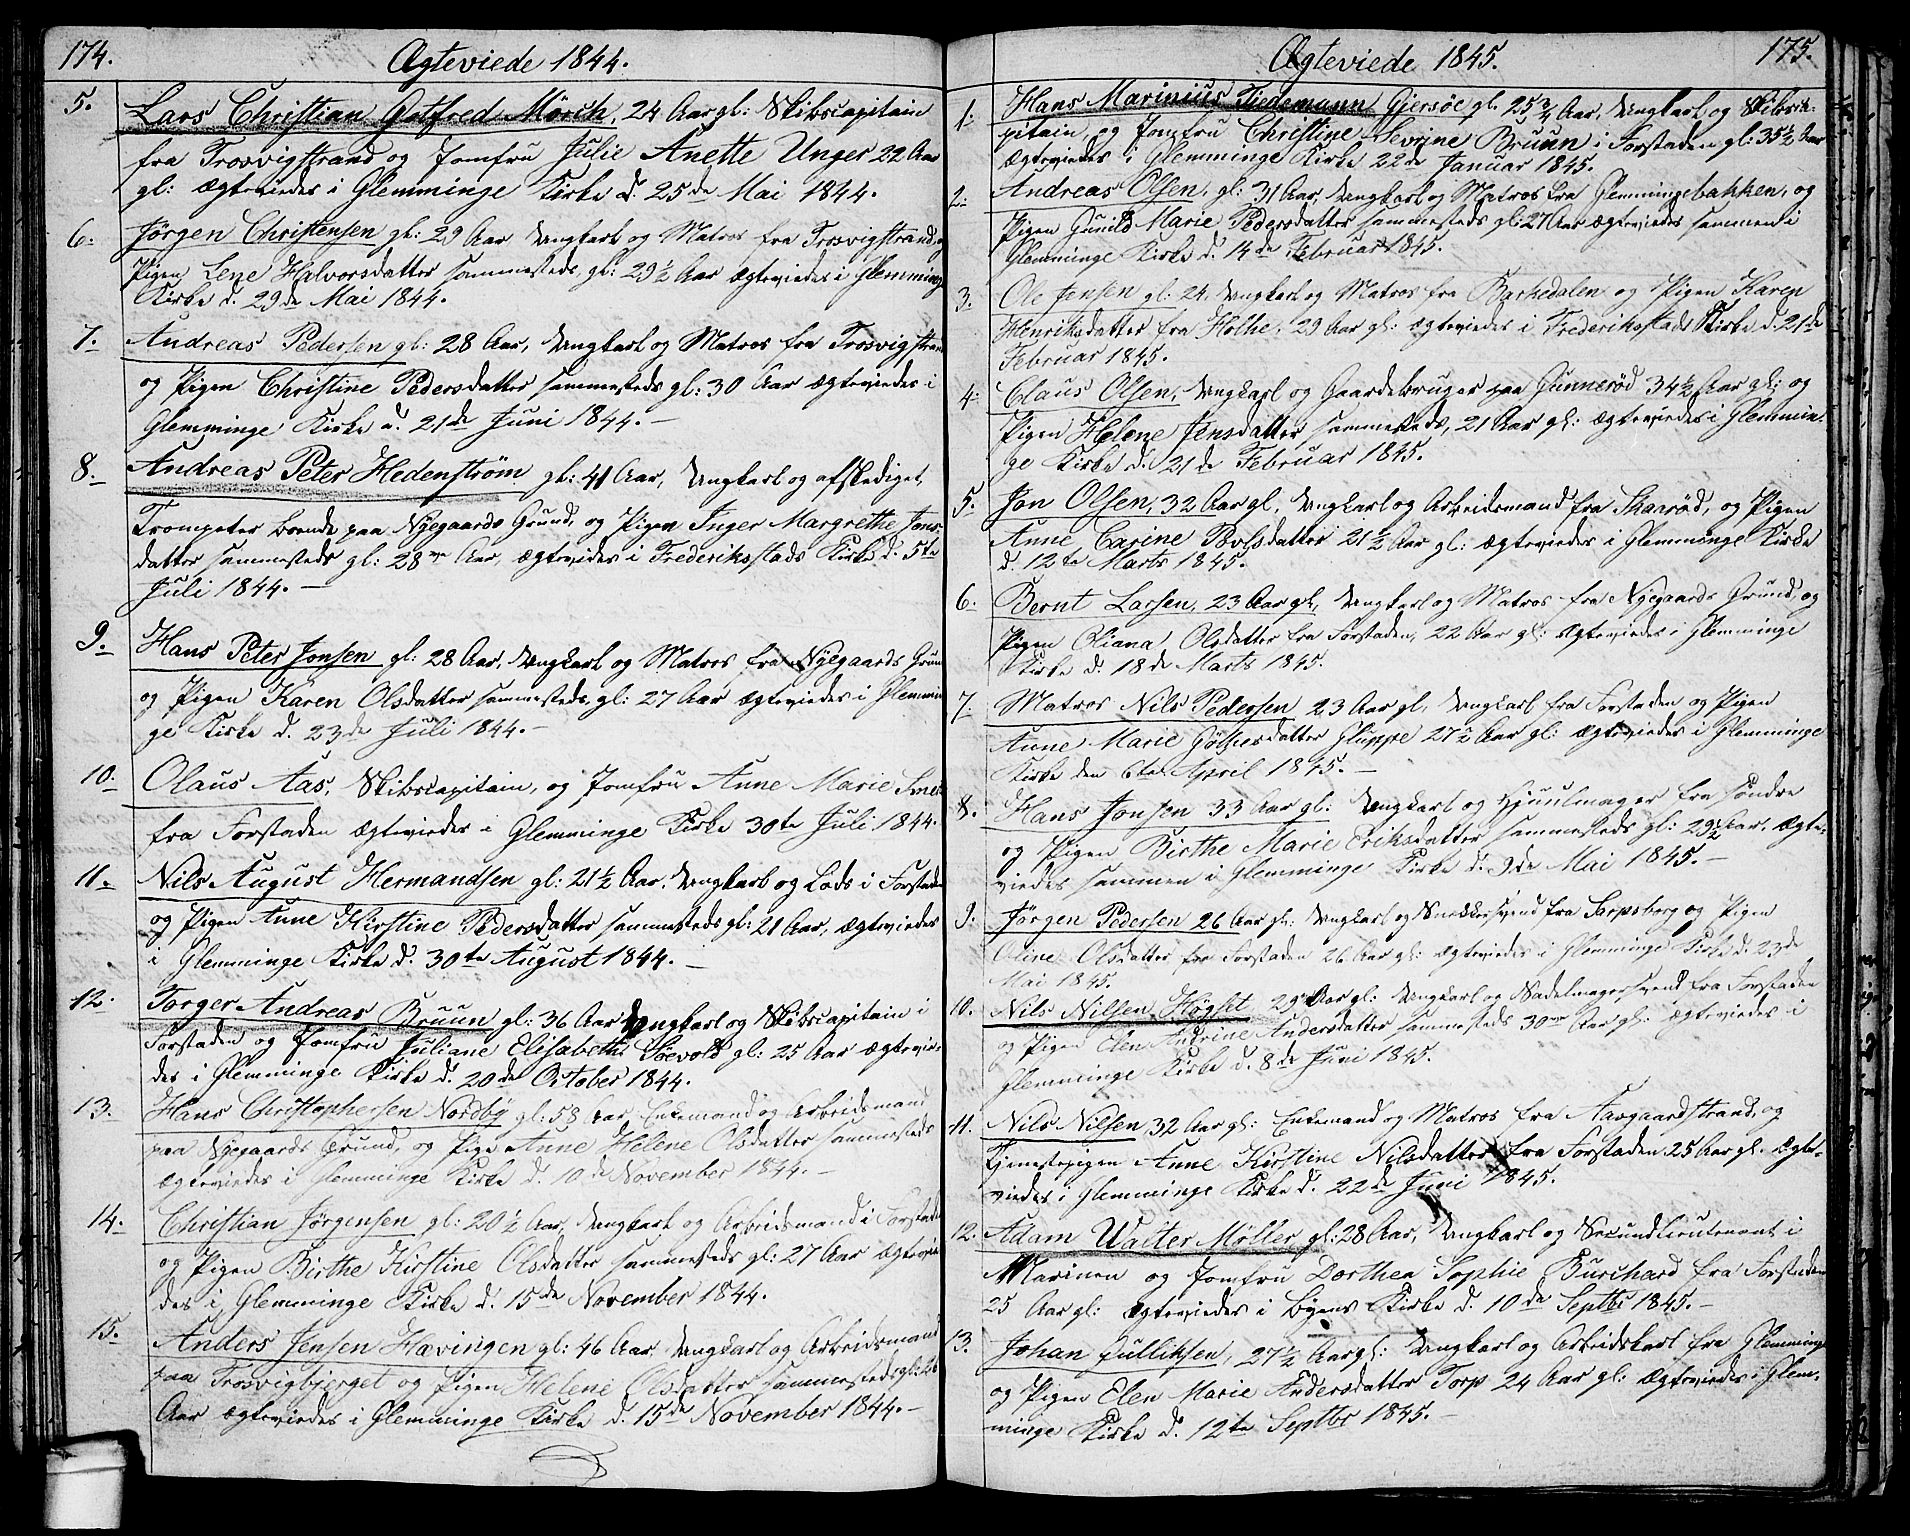 174.
Ægteviede 1844.
5. Lars Christian Gotfred Mörch, 24 Aar gl: Skibscapitain
fra Trosvigstrand og Jomfru Julie Anette Unger 22 Aar
gl: ægteviedes i Glemminge Kirke d. 25de Mai 1844.
6. Jörgen Christensen gl: 29 Aar Ungkarl og Matros fra Trosvigstrand, og
Pigen Lene Halvorsdatter sammesteds, gl: 29½ Aar ægteviedes i Glemminge
Kirke d. 29de Mai 1844.
7. Andreas Pedersen gl: 28 Aar, Ungkarl og Matros fra Trosvigstrand
og Pigen Christine Pedersdatter sammesteds gl: 30 Aar ægteviedes i
Glemminge Kirke d. 21de Juni 1844.—
8. Andreas Peter Hedenström gl: 41 Aar, Ungkarl og afskediget
Trompeter boende paa Nygaards Grund, og Pigen Inger Margrethe Jens-
datter sammesteds gl: 28 Aar, ægteviedes i Frederiksstads Kirke d. 5te
Juli 1844.—
9. Hans Peter Jonsen gl: 28 Aar, Ungkarl og Matros fra Nyegaards Grund
og Pigen Karen Olsdatter sammesteds, gl: 27 Aar ægteviedes i Glemmin-
ge Kirke d. 23de Juli 1844.—
10. Olaus Aas, Skibscapitain, og Jomfru Anne Marie
fra Forstaden ægteviedes i Glemminge Kirke 30te Juli 1844.
11. Nils August Hermandsen gl: 21½ Aar, Ungkarl og Lods i Forstaden
og Pigen Anne Kirstine Pedersdatter sammesteds gl: 21 Aar, ægteviedes
i Glemminge Kirke d. 30te August 1844.—
12. Torger Andreas Bruun gl: 36 Aar Ungkarl og Skibscapitain i
Forstaden og Jomfru Juliane Elisabeth Soevold gl: 25 Aar ægtevie-
des i Glemminge Kirke d. 20de October 1844.
13. Hans Christophersen Nordby gl: 53 Aar, Enkemand og Arbeidsmand
paa Nyegaards Grund, og Pige Anne Helene Olsdatter sammesteds
ægteviedes i Glemminge Kirke d. 10de November 1844.—
14. Christian Jörgensen gl: 20½ Aar, Ungkarl og Arbeidsmand i Forstaden
og Pigen Birthe Kirstine Olsdatter sammesteds gl: 27 Aar ægtevie-
des i Glemminge Kirke d. 15de November 1844.
15. Anders Jensen Hævingen gl: 46 Aar Ungkarl og Arbeidsmand
paa Trosvigbjerget og Pigen Helene Olsdatter sammesteds gl:
Aar ægteviedes i Glemminge Kirke d. 15de November 1844.—
Ægteviede 1845.
175.
1. Hans Marinius Tiedemann Gjersöe gl. 25¾ Aar, Ungkarl og Skibska-
pitain, og Jomfru Christine Sevrine Bruun i Forstaden gl: 35½ Aar
ægteviedes i Glemminge Kirke 22de Januar 1845.
2. Andreas Olsen, gl: 31 Aar, Ungkarl og Matros fra Glemmingebakken, og
Pigen Gunild Marie Pedersdatter sammesteds gl: 27 Aar ægteviedes sammen i
Glemminge Kirke d. 14de Februar 1845.
3. Ole Jensen gl: 24, Ungkarl og Matros fra Barkedalen og Pigen Karen
Henriksdatter fra Holhe, 29 Aar gl: ægteviedes i Frederiksstads Kirke d. 21de
Februar 1845.
4. Claus Olsen, Ungkarl og Gaardebruger paa Gunneröd 34½ Aar gl: og
Pigen Helene Jensdatter sammesteds, 21 Aar gl: ægteviedes i Glemmin-
ge Kirke d. 21de Februar 1845.
5. Jon Olsen, 32 Aar gl, Ungkarl og Arbeidsmand fra Skaaröd, og Pigen
Anne Carine Povlsdatter 21½ Aar gl: ægteviedes i Glemminge Kirke
d. 12te Marts 1845.
6. Bernt Larsen, 23 Aar gl, Ungkarl og Matros fra Nyegaards Grund, og
Pigen Oliana Olsdatter fra Forstaden, 22 Aar gl: ægteviedes i Glemminge
Kirke d. 18de Marts 1845.
7. Matros Nils Pedersen 23 Aar gl, Ungkarl fra Forstaden og Pigen
Anne Marie Gölhesdatter Gluppe 27½ Aar gl: ægteviedes i Glemminge
Kirke den 6te April 1845.—
8. Hans Jonsen 33 Aar gl: Ungkarl og Hjuulmager fra söndre
og Pigen Birthe Marie Eriksdatter sammesteds gl: 29½ Aar, ægte-
viedes sammen i Glemminge Kirke d. 9de Mai 1845.—
9. Jörgen Pedersen 26 Aar gl: Ungkarl og Snekkersvend fra Sarpsborg og Pigen
Oline Olsdatter fra Forstaden 26 Aar gl: ægteviedes i Glemminge Kirke d. 23de
Mai 1845.
10. Nils Nilsen Högset 29 Aar gl: Ungkarl og Sadelmagersvend fra Forstaden
og Pigen Elen Andrine Andersdatter sammesteds 30 Aar gl: ægteviedes i
Glemminge Kirke d. 8de Juni 1845.
11. Nils Nilsen 32 Aar gl: Enkemand og Matros fra Aavgaardstrand, og
Tjenestepigen Anne Kirstine Nilsdatter fra Forstaden 25 Aar gl. ægte-
viedes i Glemminge Kirke d. 22de Juni 1845.
12. Adam Walter Möller gl: 28 Aar, Ungkarl og Secundlieutenant i
Marinen og Jomfru Dorthea Sophie Burchard fra Forstaden
25 Aar gl: ægteviedes i Byens Kirke d. 10de Septbr 1845.—
13. Johan Gulliksen, 27½ Aar gl: Ungkarl og Arbeidskarl fra Glemminge
og Pigen Elen Marie Andersdatter Torp 24 Aar gl: ægteviedes i Glem-
minge Kirke d. 12te Septbr 1845.—